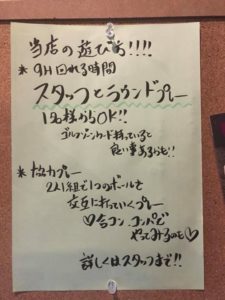 当店の遊び方!!!!
* 9H回れる時間
スタッフとラウンドプレー
1名様からOK!!
ゴルフゾーンカード持っていると
良い事あるかも!!
* 協力プレー
2人1組で1つのボールを
交互に打っていくプレー
♡合コン、コンパで
やってみるのも♡
詳しくはスタッフまで!!